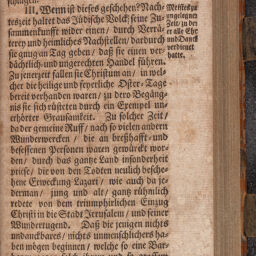 III. Wenn ist dieses geschehen? Nach-
welszeit haltet das Jüdische Volck seine Zu-
sammenkunfft wider einen / durch Verä-
terey und heimliches Nachstellen / dardurch
sie gnug an Tag geben / daß sie einen ver-
dächtlich- und ungerechten Handel führen.
Zu jener zeit fallen sie Christum an / in wel-
cher die heilige und feyerliche Oster-Tage
bereit verhanden waren / zu dero Begäng-
nis sie sich rüsteten durch ein Exempel un-
erhörter Grausamkeit. Zu solcher Zeit /
da der gemeine Ruff / nach so vielen andern
Wunderwercken / die an breßhafft- und
besessenen Personen waren gewürckt wor-
den / durch das gantze Land insonderheit
priese / die von den Todten neulich besche-
hene Erweckung Lazari / wie auch da je-
derman / jung und alt / gantz rühmlich
redete von dem triumphirlichen Einzug
Christi in die Stadt Jerusalem / und seiner
Wundertugend. Daß die jenigen nichts
undanckbares / nichts unmenschlichers ha-
ben mögen beginnen / welche so eine Bar-
Zeit / in der
er alle Ehr
und Danck
verdienet
hatte.